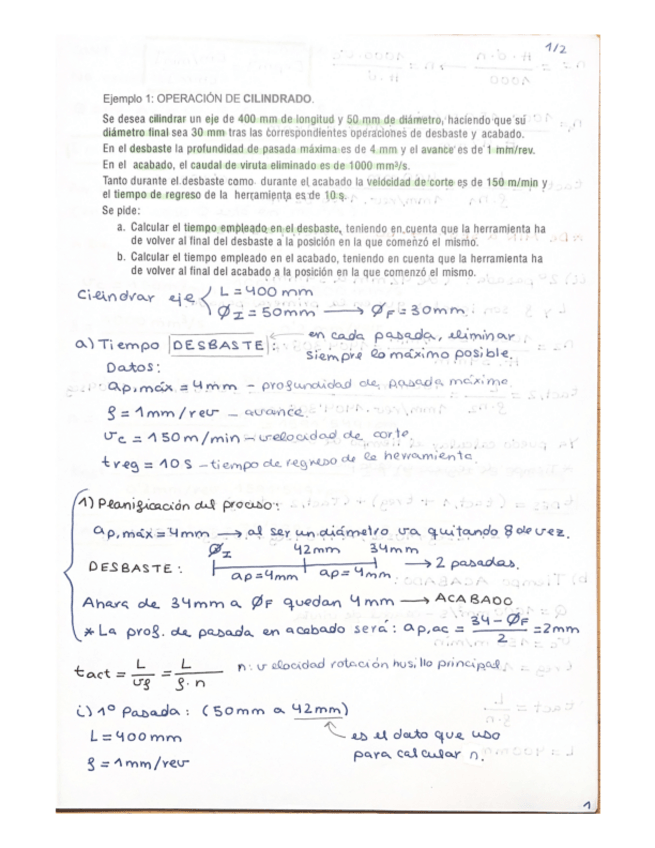 1/2
Ejemplo 1: OPERACIÓN DE CILINDRADO.
Se desea cilindrar un eje de 400 mm de longitud y 50 mm de diámetro, haciendo que su
diámetro final sea 30 mm tras las correspondientes operaciones de desbaste y acabado.
En el desbaste la profundidad de pasada máxima es de 4 mm y el avance es de 1 mm/rev.
En el acabado, el caudal de viruta eliminado es de 1000 mm³/s.
Tanto durante el desbaste como durante el acabado la velocidad de corte es de 150 m/min y
el tiempo de regreso de la herramienta es de 10 s.
Se pide:
a. Calcular el tiempo empleado en el desbaste, teniendo en cuenta que la herramienta ha
de volver al final del desbaste a la posición en la que comenzó el mismo.
b. Calcular el tiempo empleado en el acabado, teniendo en cuenta que la herramienta ha
de volver al final del acabado a la posición en la que comenzó el mismo.
Cilindrar eje { L = 400 mm
ØI = 50mm → ØF = 30mm
a) Tiempo DESBASTE: ← en cada pasada, eliminar
siempre lo máximo posible.
Datos:
ap,máx = 4mm - profundidad de pasada máxima
f = 1mm/rev - avance
vc = 150 m/min - velocidad de corte
treg = 10 s - tiempo de regreso de la herramienta
1) Planificación del proceso:
ap,máx = 4mm → al ser un diámetro va quitando 8 de vez.
ØI 42mm 34mm
DESBASTE: ap=4mm ap=4mm → 2 pasadas.
Ahora de 34mm a ØF quedan 4mm → ACABADO
* La prof. de pasada en acabado será: ap,ac = (34 - ØF)/2 = 2mm
tact = L/vf = L/(f·n) n: velocidad rotación husillo principal
i) 1º Pasada: (50mm a 42mm)
L = 400mm ↖ es el dato que uso
f = 1mm/rev para calcular n.
1